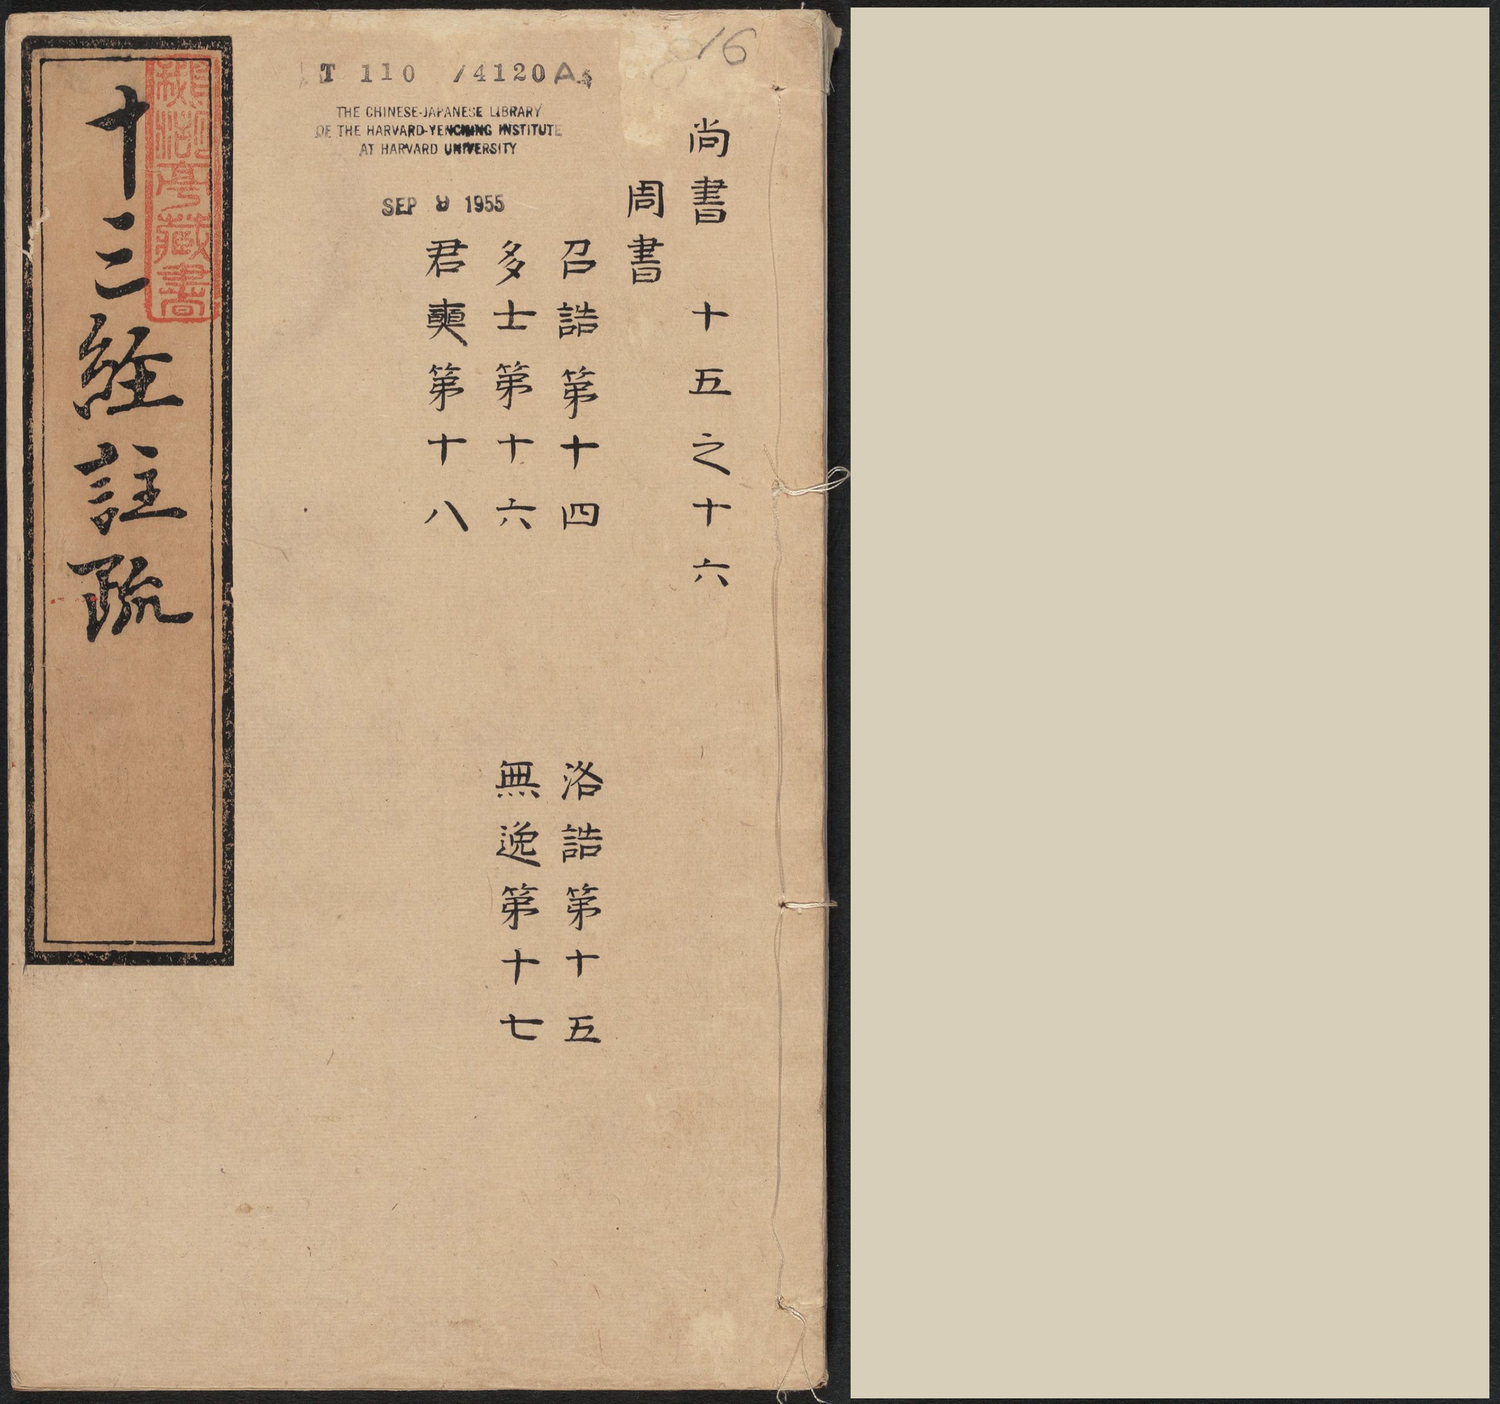 16
T 110 /4120A
THE CHINESE-JAPANESE LIBRARY
OF THE HARVARD-YENCHING INSTITUTE
AT HARVARD UNIVERSITY
SEP 9 1955
尚書 十五之十六
周書
召誥第十四 洛誥第十五
多士第十六 無逸第十七
君奭第十八
十三經註疏
亭藏書